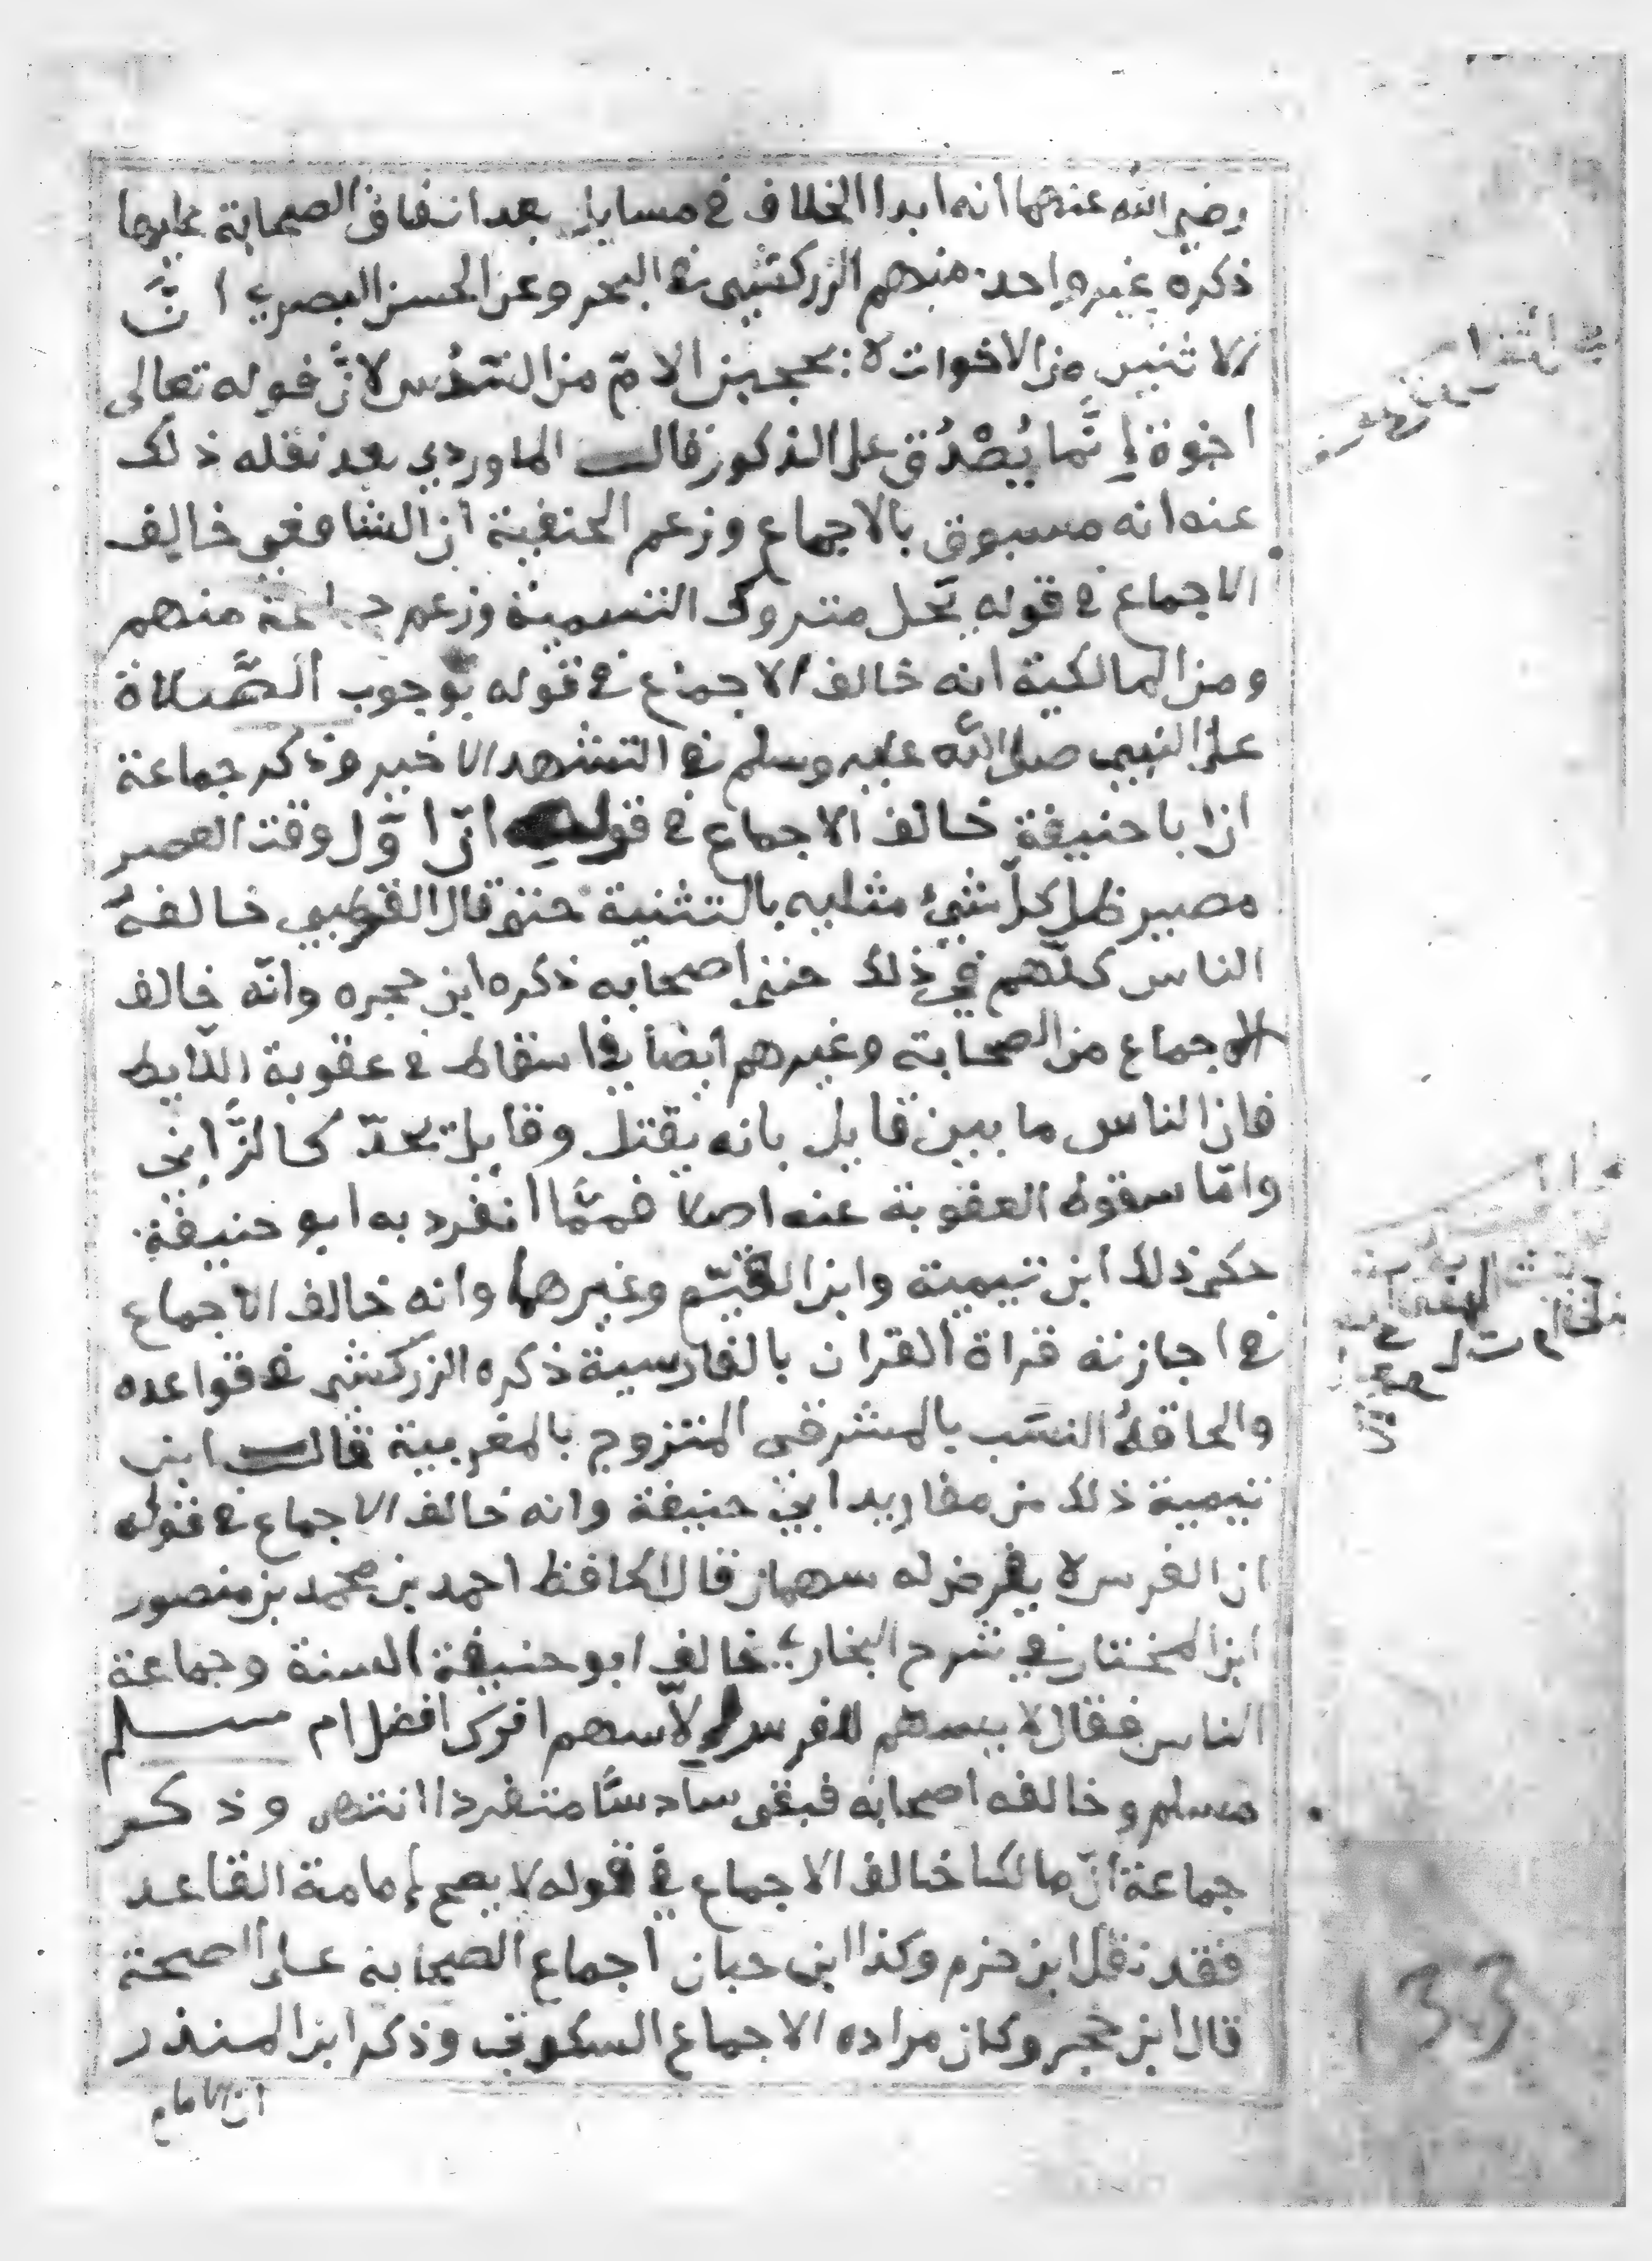 رضي الله عنهما انه ابدا الخلاف في مسايل بعد اتفاق الصحابة عليها
ذكره غير واحد منهم الزركشي في البحر وعن الحسن البصري انَّ
الاثنين من الاخوات لا يحجبن الامّ من السّدُس لانَّ قوله تعالى
اخوة اِنَّما يُصْدُق على الذكور قالـــ الماوردي بعد نقله ذلك
عنه انه مسبوق بالاجماع وزعم الحنفية ان الشافعي خالف
الاجماع في قوله بحل متروك التسمية وزعم جماعة منهم
ومن المالكية انه خالف الاجماع في قوله بوجوب الصَّلاة
على النبي صلى الله عليه وسلم في التشهد الاخير وذكر جماعة
ان ابا حنيفة خالف الاجماع في قوله انّ اوّل وقت العصر
مصير ظل كلّ شيء مثليه بالتثنية حتى قال القرطبي خالفه
الناس كلّهم في ذلك حتى اصحابه ذكره ابن حجره وانّه خالف
الاجماع من الصحابة وغيرهم ايضا في اسقاط في عقوبة اللّايط
فان الناس ما بين قايل بانه يقتل وقايل يحدّ كالزَّاني
وامّا سقوط العقوبة عنه اصلا فممَّا انفرد به ابو حنيفة
حكى ذلك ابن تيمية وابن القيّم وغيرهما وانه خالف الاجماع
في اجازته قراة القران بالفارسية ذكره الزركشي في قواعده
والحاقهُ النسَب بالمشرقي المتزوج بالمغربية قالـــ ابن
تيمية ذلك من مفاريد ابي حنيفة وانه خالف الاجماع في قوله
ان الفرس لا يفرض له سهمان قال الحافظ احمد بن محمد بن منصور
ابن المختار في شرح البخاري خالف ابو حنيفة السنة وجماعة
الناس فقال لا يسهم للفرس الّا سهم افرس افضل ام مسلم
مسلم وخالفه اصحابه فبقي سادسًا متفردا انتهى وذكر
جماعة انّ مالكا خالف الاجماع في قوله لا يصح إمامة القاعد
فقد نقل ابن حزم وكذا ابن حبان اجماع الصحابة على الصحة
قال ابن حجر وكان مراده الاجماع السكوتي وذكر ابن المنذر
ان الامام
133